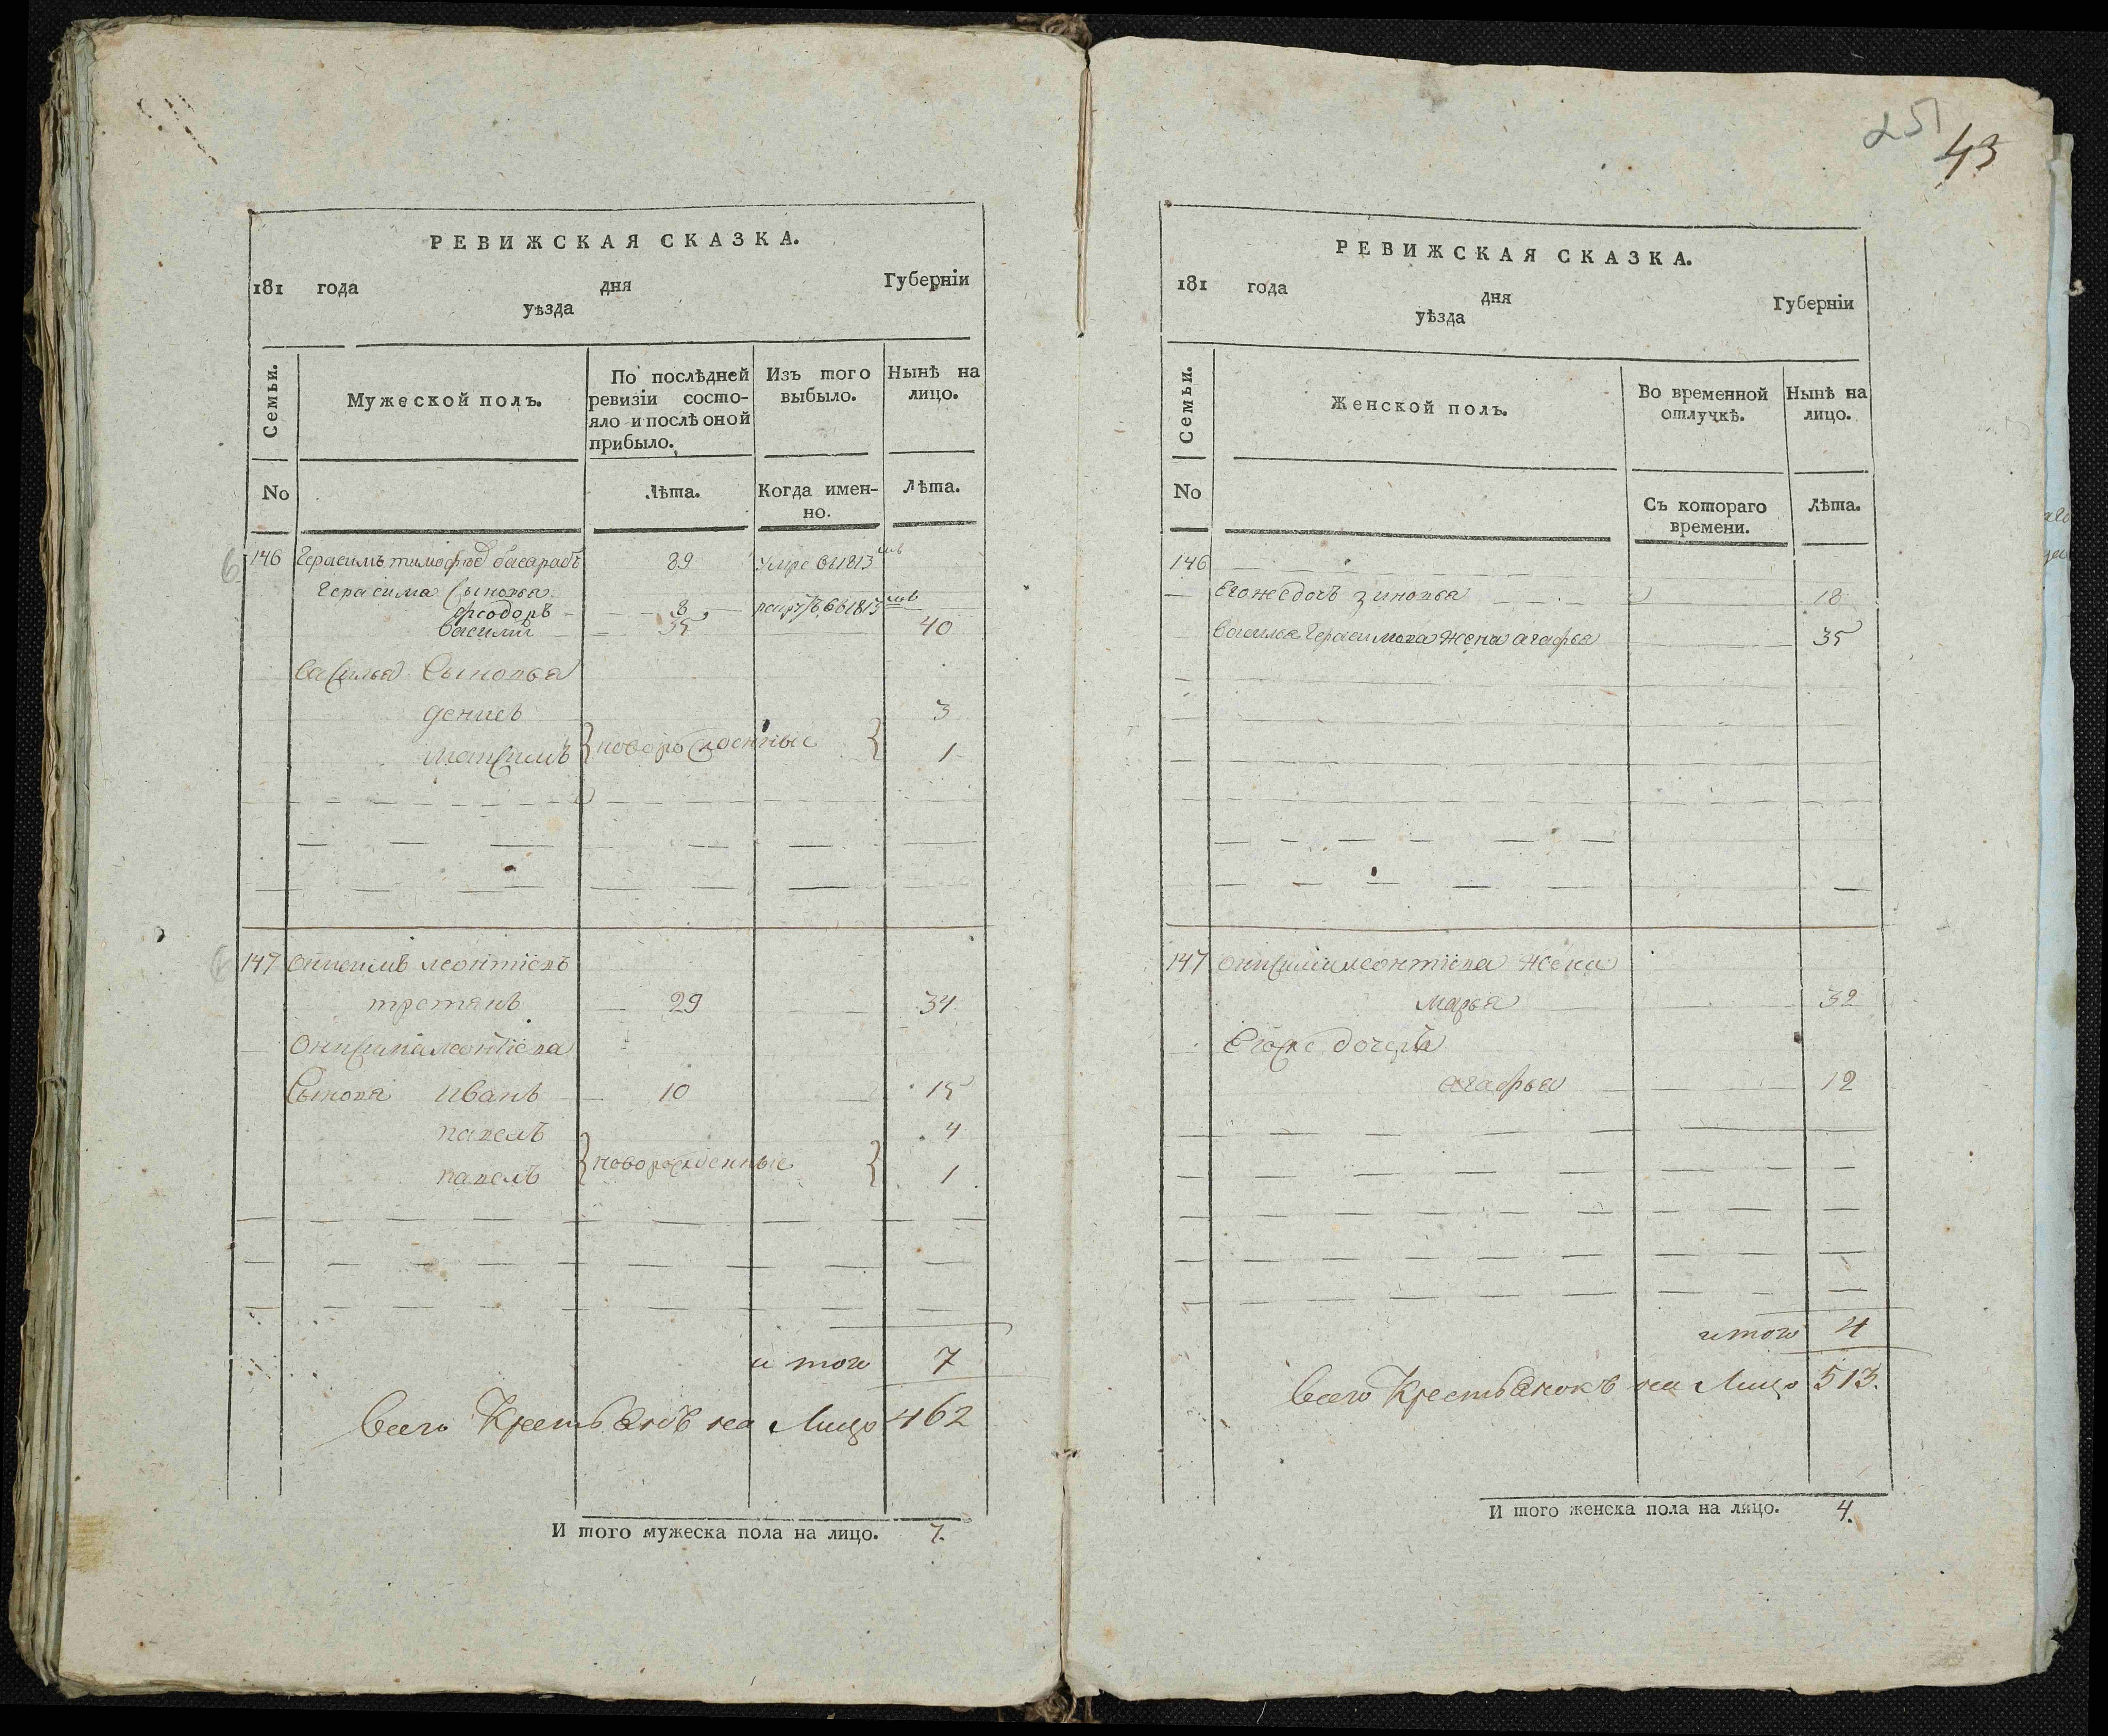 РЕВИЖСКАЯ СКАЗКА.
181 года дня Губернiи
уѣзда
Семьи.
Мужеской полъ.
По послѣдней ревизiи состо-
яло и послѣ оной
прибыло.
Изъ того
выбыло.
Нынѣ на
лицо.
No
Лѣта.
Когда имен-
но.
Лѣта.
146 Герасимъ тимофѣе басарабъ 89 умре въ 1813
Герасима сыновья
феодоръ 8 въ 1813
василий 35 40
василья сыновья
денисъ 3
новорожденные
максимъ 1
147 онисимъ леонтiевъ
третякъ 29 34
онисима леонтiева
сыновя иванъ 10 15
павелъ 4
новорожденные
павелъ 1
итого 7
Всего Крестьянъ на Лицо 462
И того мужеска пола на лицо. 7.
251
43
РЕВИЖСКАЯ СКАЗКА.
181 года дня Губернiи
уѣзда
Семьи.
Женской полъ.
Во временной
отлучкѣ.
Нынѣ на
лицо.
No
Съ котораго
времени.
Лѣта.
146
его же дочь зиновья 18
василья Герасимова жена агафья 35
147 онисима леонтiева жена
марья 32
его же дочерь
агафья 12
итого 4
Всего Крестьянокъ на Лицо 513.
И того женска пола на лицо. 4.